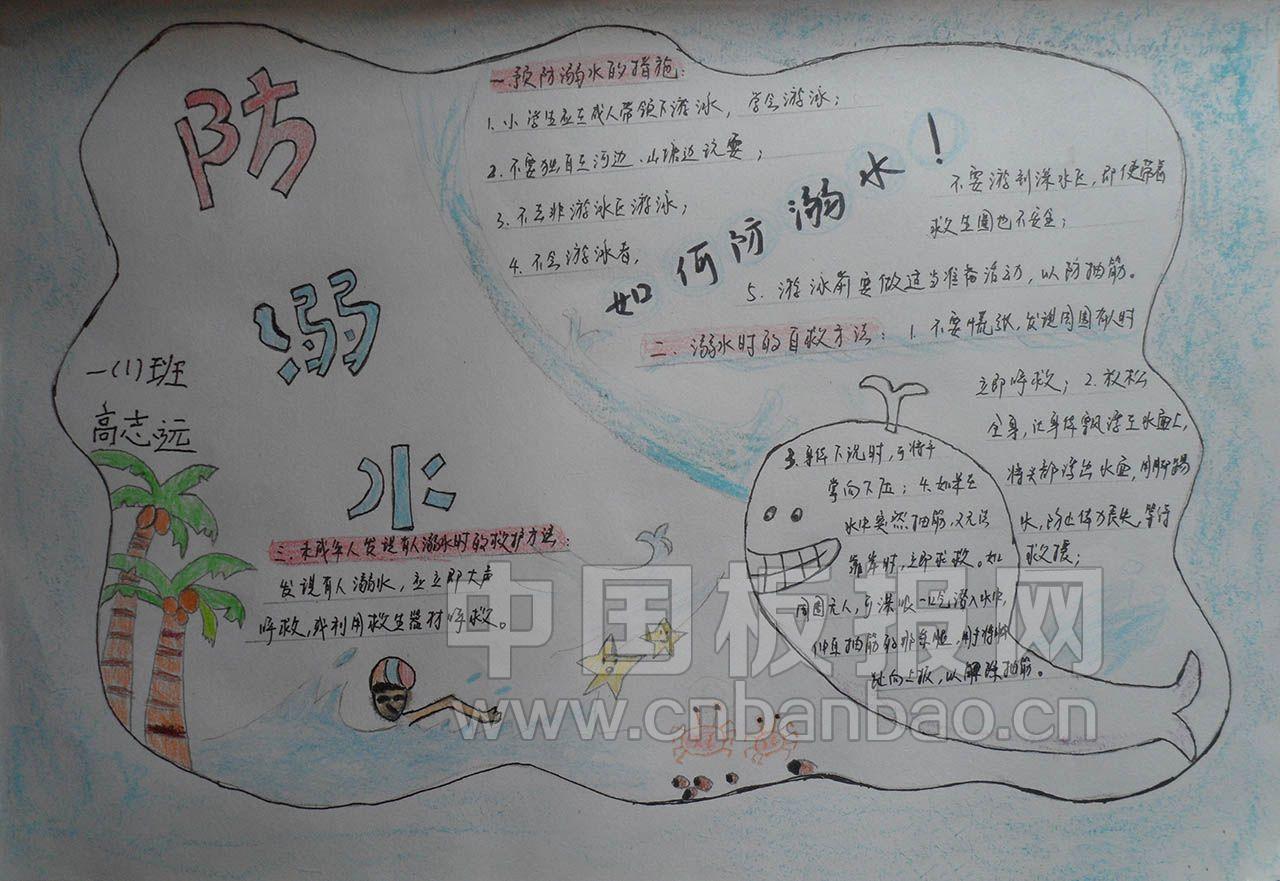 防
溺
水
一(1)班
高志远
如何防溺水！
一.预防溺水的措施：
1.小学生应在成人带领下游泳，学会游泳；
2.不要独自在河边、山塘边玩耍；
3.不去非游泳区游泳；
4.不会游泳者，
不要游到深水区，即使带着
救生圈也不安全；
5.游泳前要做适当准备活动，以防抽筋。
二.溺水时的自救方法：1.不要慌张，发现周围有人时
立即呼救；2.放松
全身，让身体飘浮在水面上，
将头部浮出水面，用脚踢
水，防止体力丧失，等待
救援；
3.身体下沉时，可将手
掌向下压；4.如果在
水中突然抽筋，又无法
靠岸时，立即求救。如
周围无人，可深吸一口气潜入水中，
伸直抽筋的那条腿，用手将脚
趾向上扳，以解除抽筋。
三.未成年人发现有人溺水时的救护方法：
发现有人溺水，应立即大声
呼救，或利用救生器材呼救。
中国板报网
www.cnbanbao.cn